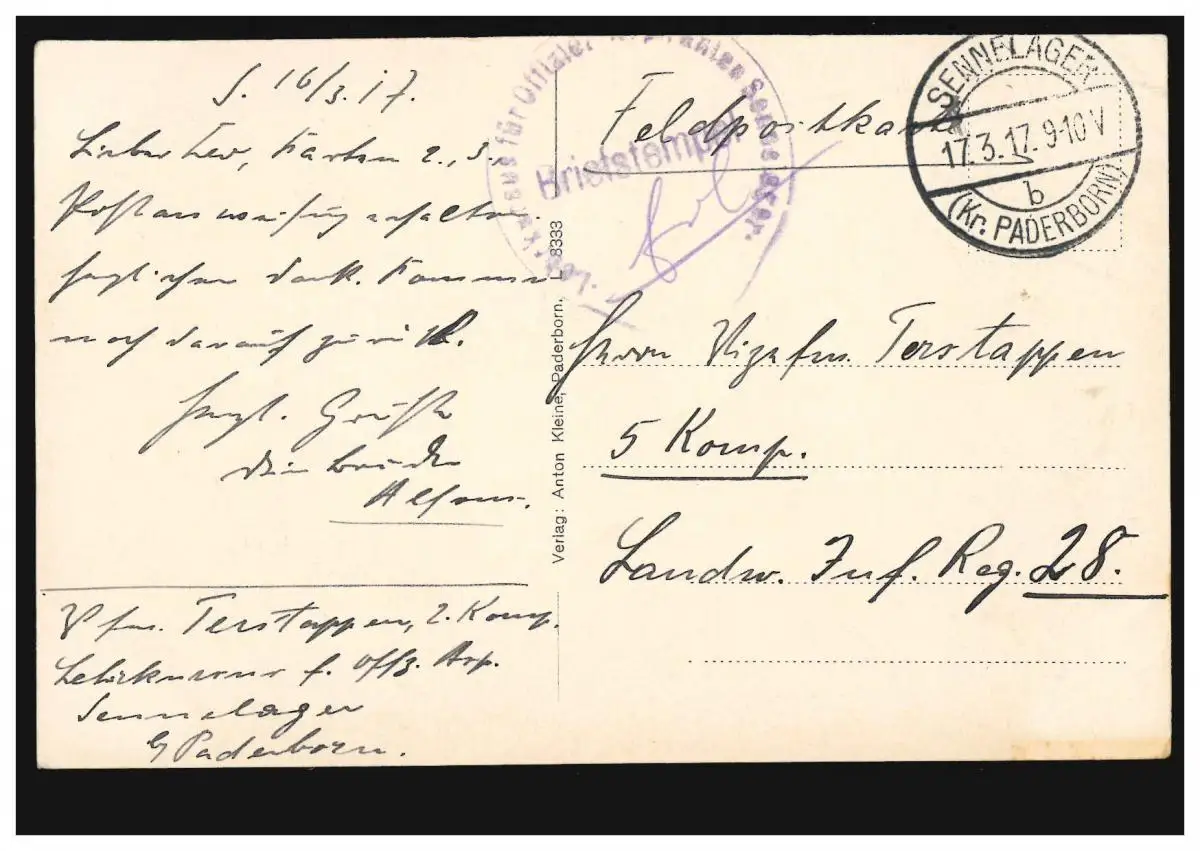 S. 16/3.17.
Lieber Leo, Karten 2., 3.
Postanweisung erhalten.
herzlichen Dank. Komme
noch darauf zurück.
Herzl. Grüße
Dein Bruder
Alfons.
Vfw. Terstappen, 2. Komp.
Lehrkursus f. Offz. Asp.
Sennelager
b/ Paderborn.
Verlag: Anton Kleine, Paderborn. 8333
Lehr-Kursus für Offizier-Aspiranten Sennelager.
Briefstempel
Feldpostkarte
SENNELAGER
17.3.17. 9-10 V
b
(Kr. PADERBORN)
Herrn Vizefw. Terstappen
5 Komp.
Landw. Inf. Reg. 28.